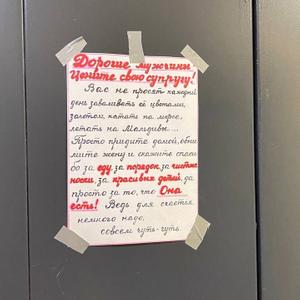 Дорогие мужчины
Цените свою супругу!
Вас не просят каждый
день заваливать её цветами,
золотом, катать на мерсе,
летать на Мальдивы...
Просто придите домой, обни
мите жену и скажите спаси
бо за еду, за порядок, за чистые
носки, за красивых детей, да
просто за то, что Она
есть! Ведь для счастья
немного надо,
совсем чуть-чуть.